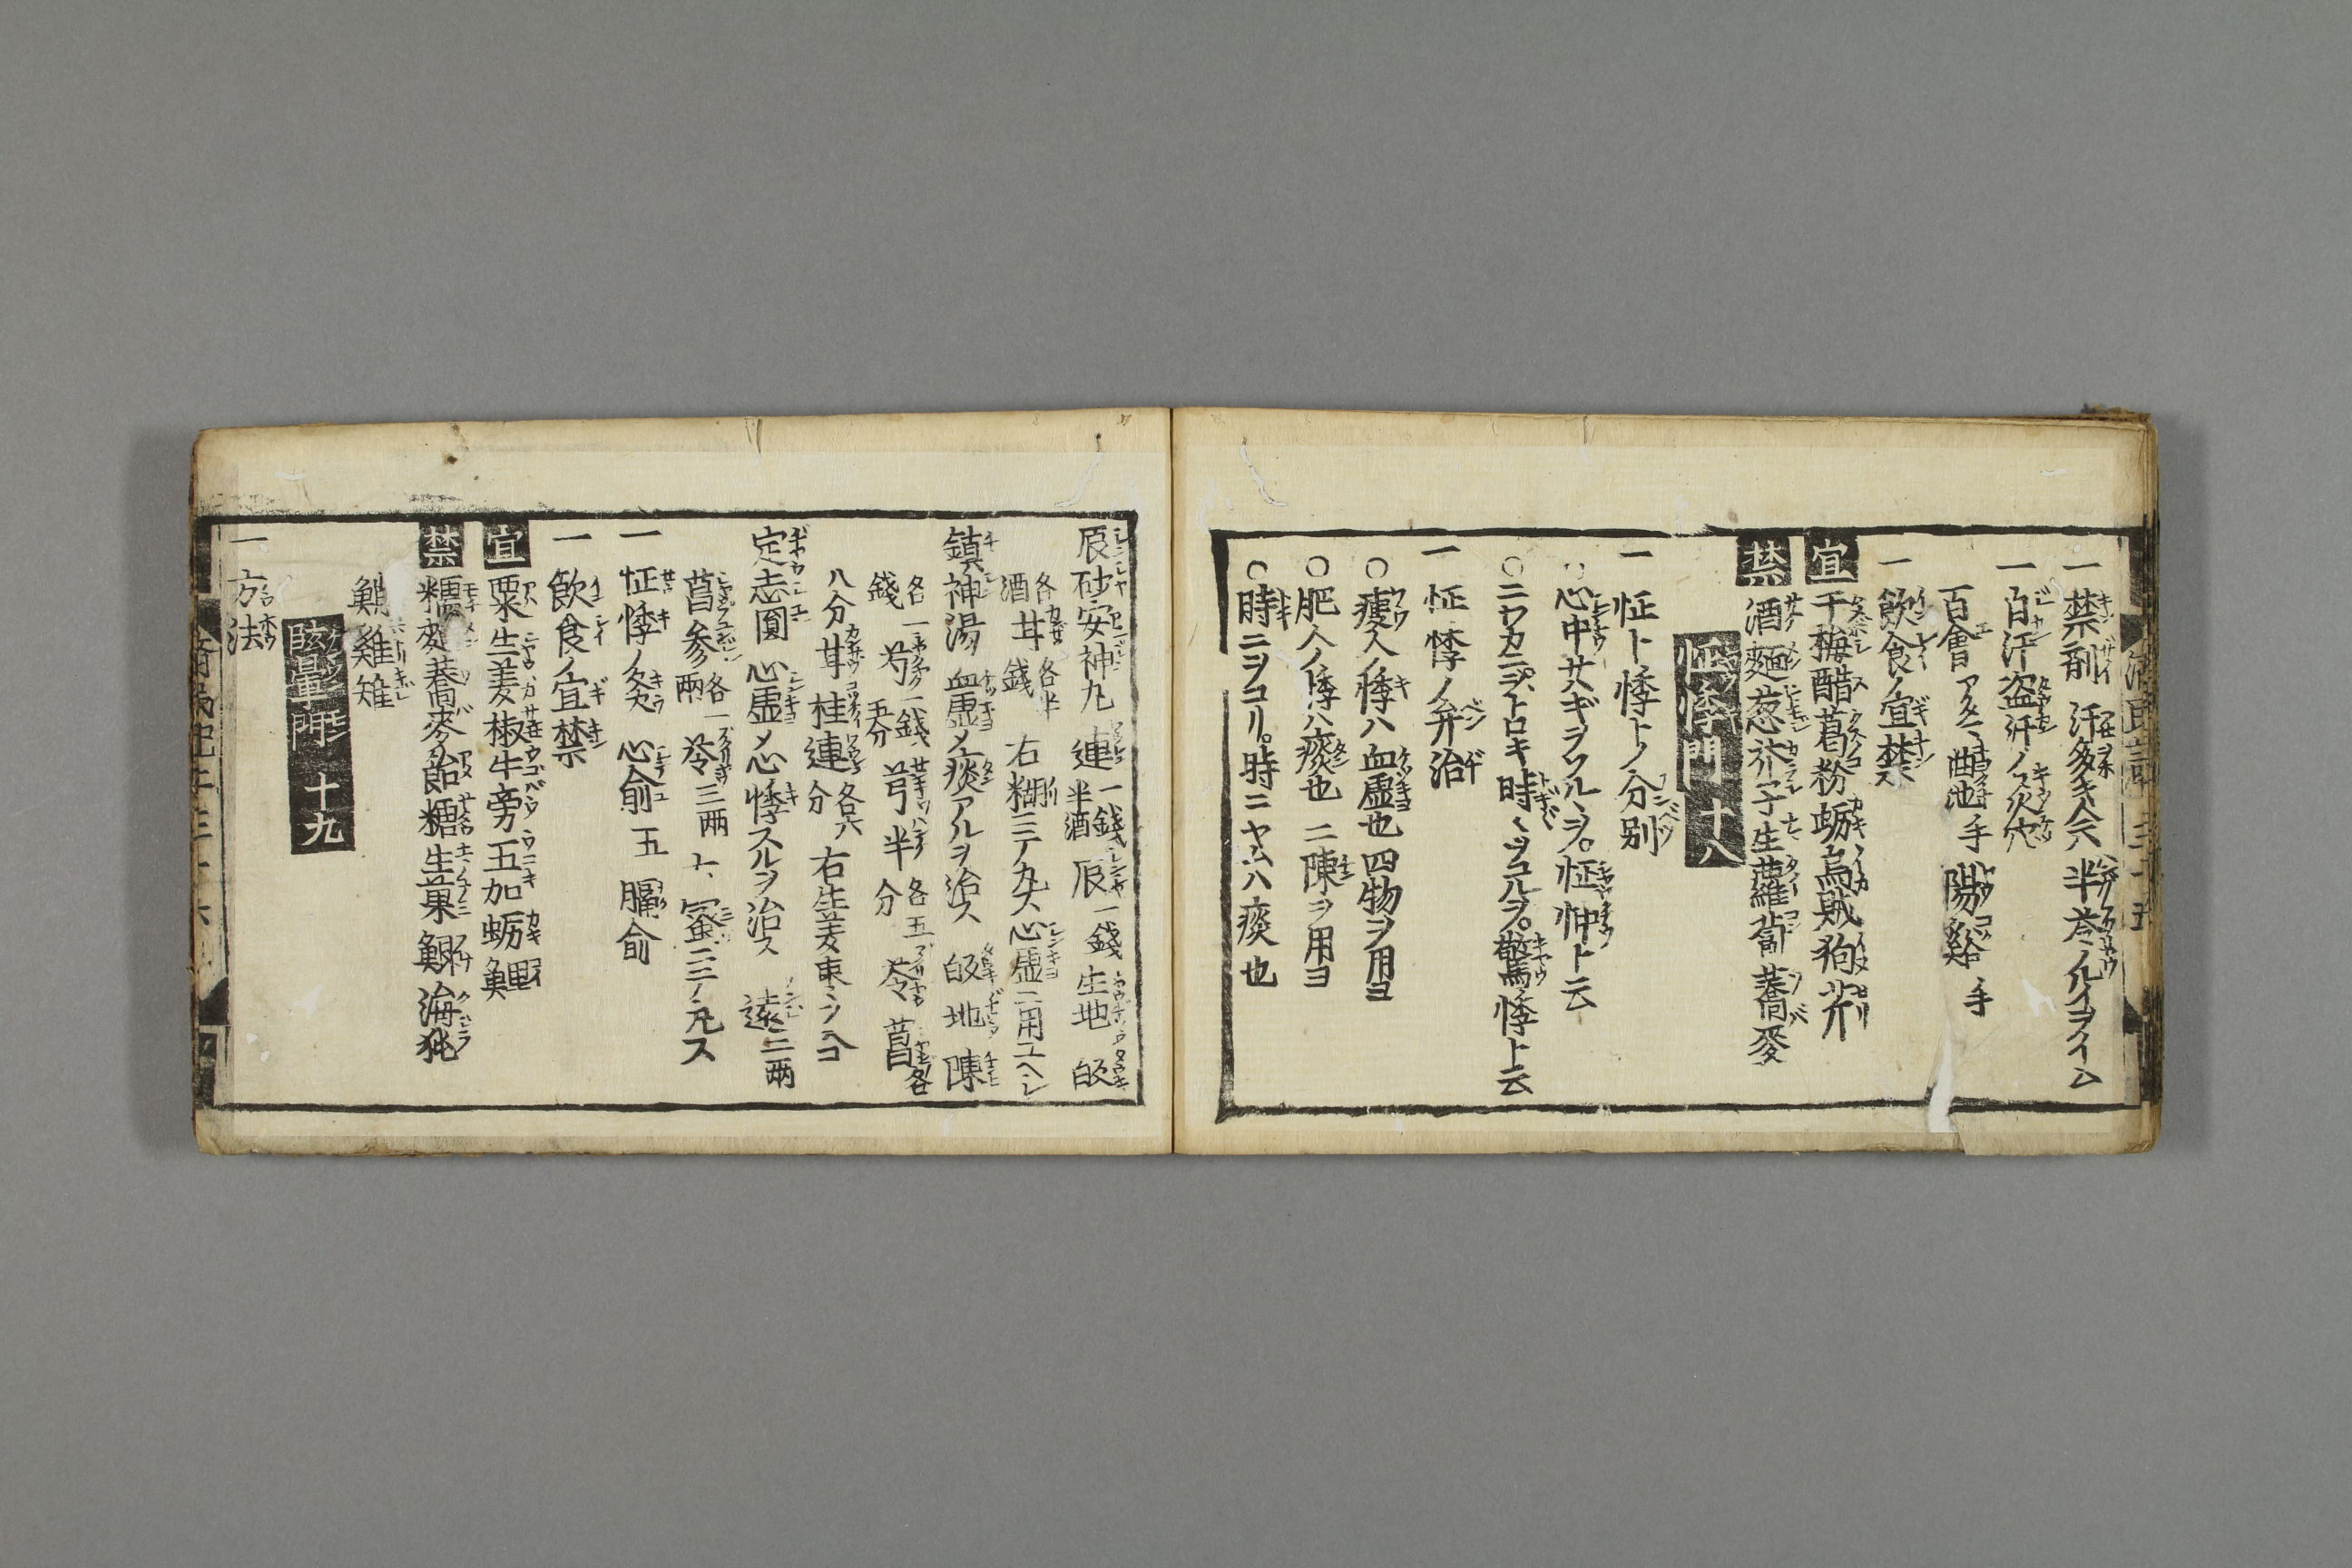 一禁剤 汗多キ人ハ半苓ノルイヲイム
一自汗盗汗ノ灸穴
百會 曲池手 陽谿手
一飲食ノ宜禁
宜 干梅醋葛粉蛎烏賊狗芹
禁 酒麺葱芥子生蘿蔔蕎麥
怔悸門 十八
一怔ト悸トノ分別
○心中サハギヲソルヽヲ。怔忡ト云
○ニワカニヲトロキ時ヽヲコルヲ。驚悸ト云
一怔悸ノ弁治
○痩人ノ悸ハ血虚也四物ヲ用ヨ
○肥人ノ悸ハ痰也 二陳ヲ用ヨ
○時ニヲコリ。時ニヤムハ痰也
辰砂安神丸 連一錢半酒 辰一錢 生地 皈
酒各 甘 錢各半 右糊ニテ丸ス心虚ニ用ユヘシ
鎮神湯 血虚メ痰アルヲ治ス 皈 地 陳
各一錢 芍 二錢五分 芎 半 各五分 苓 菖各
八分 甘 桂 連各六分 右生姜棗ヲ入ヨ
定志圓 心虚メ心悸スルヲ治ス 遠二両
菖参各一両 苓三両 蜜ニテ丸ス
一怔悸ノ灸 心俞五 膈俞
一飲食ノ宜禁
宜 粟生姜椒牛旁五加蛎鯉
禁 糯麺蕎麥飴糖生菓鯏海㹠
雞雉
眩暈門 十九
一方法